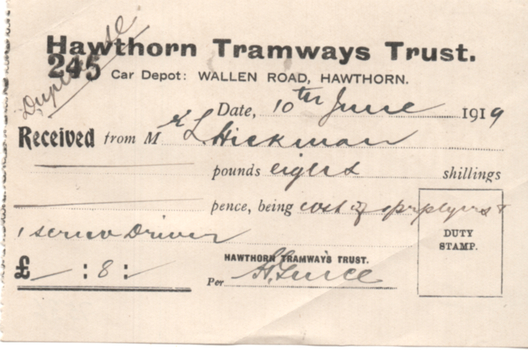 Duplicate
Hawthorn Tramways Trust.
245 Car Depot: WALLEN ROAD, HAWTHORN.
Date, 10th June 1919
Received from Mr L Hickman
pounds eight shillings
pence, being cost of &
1 screw Driver
DUTY
STAMP.
HAWTHORN TRAMWAYS TRUST.
£ — : 8 : —
Per